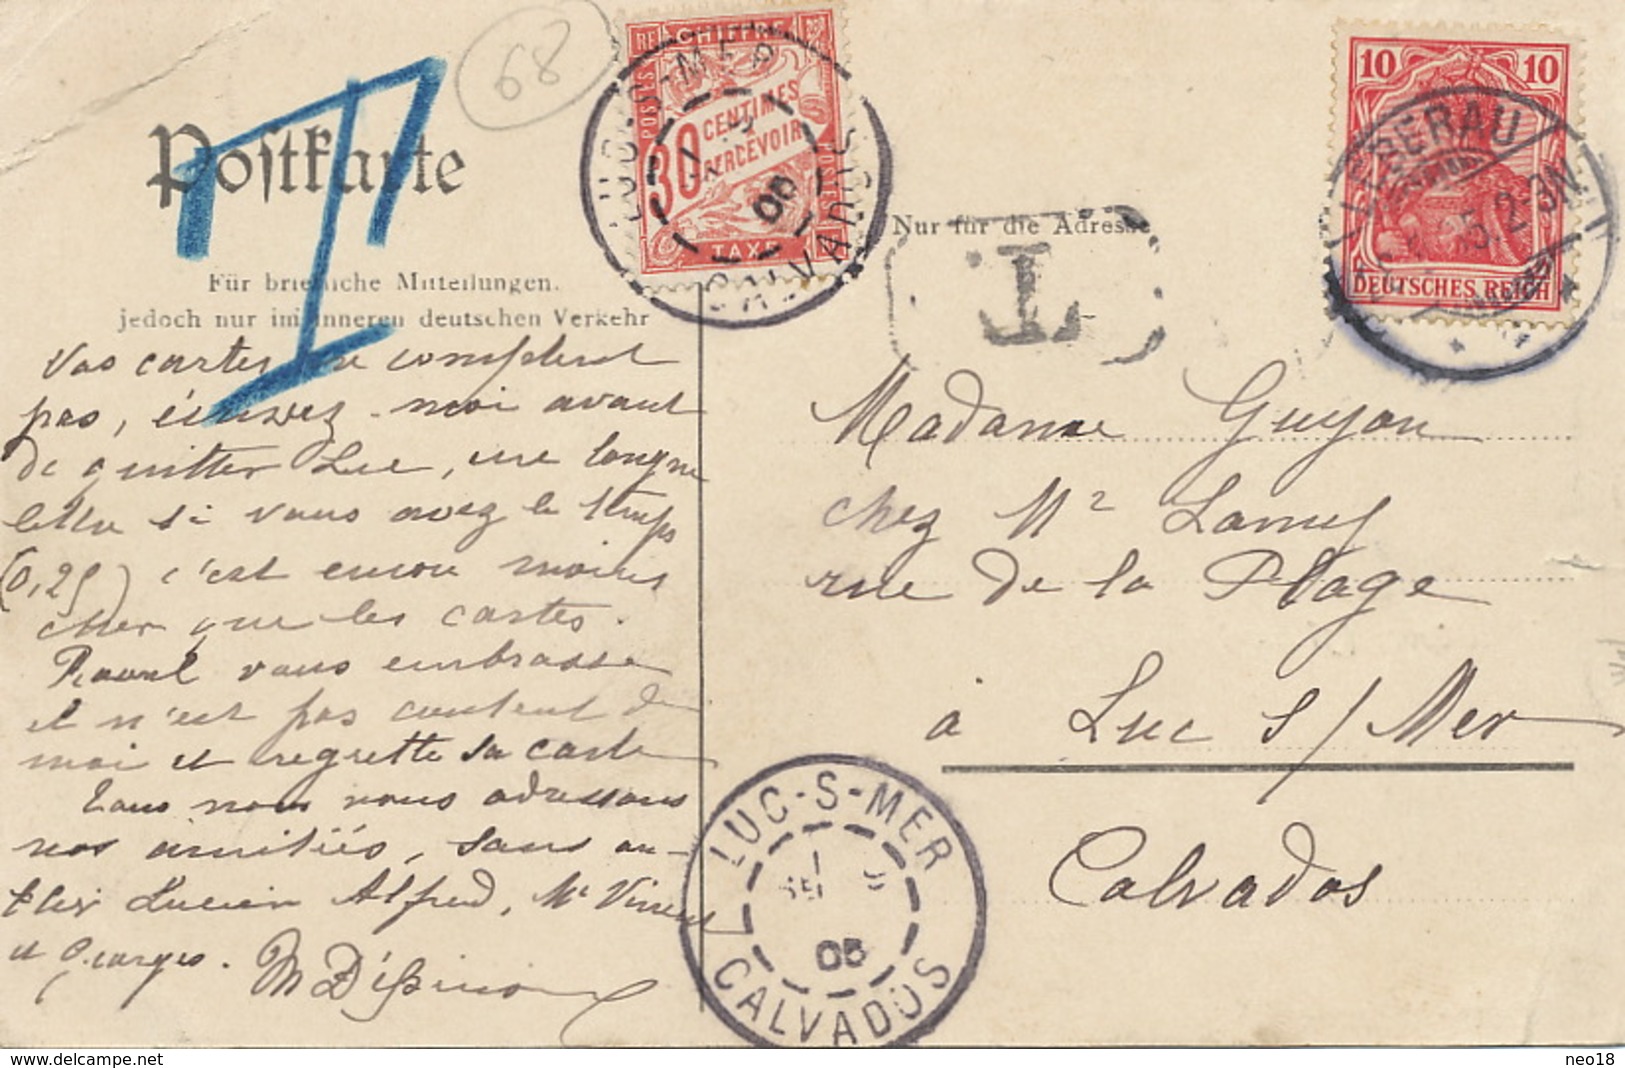 68
Postkarte
Für briefliche Mitteilungen.
jedoch nur im inneren deutschen Verkehr
Nur für die Adresse
T
T
CHIFFRE
POSTES
30 CENTIMES
A PERCEVOIR
TAXE
LUC-S-MER
05
CALVADOS
10 10
DEUTSCHES REICH
2-3N
Vos cartes ne comptent
pas, écrivez-moi avant
de quitter Luc, une longue
lettre si vous avez le temps
(0,25) c'est encore moins
cher que les cartes.
Raoul vous embrasse
il n'est pas content de
moi et regrette sa carte
Tous nous vous adressons
nos amitiés, sans ou-
blier Lucien Alfred, Mr Vincent
et Georges.
Madame Guyon
chez Mr Lamy
rue de la Plage
à Luc s/Mer
Calvados
LUC-S-MER
05
CALVADOS
delcampe.net
neo18